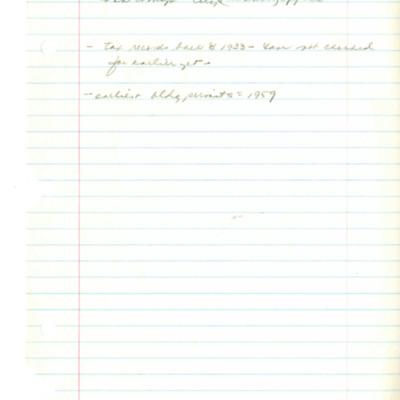 - tax records back to 1933 - have not checked
for earlier yet.
- earliest bldg permits = 1959